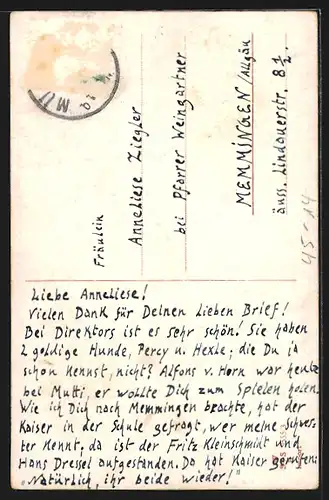 Fräulein
Anneliese Ziegler
bei Pfarrer Weingärtner
MEMMINGEN/Allgäu
äuss. Lindauerstr. 8½.
45-14
Liebe Anneliese!
Vielen Dank für Deinen lieben Brief!
Bei Direktors ist es sehr schön! Sie haben
2 goldige Hunde, Percy u. Hexle; die Du ja
schon kennst, nicht? Alfons v. Horn war heute
bei Mutti, er wollte Dich zum Spielen holen.
Wie ich Dich nach Memmingen brachte, hat der
Kaiser in der Schule gefragt, wer meine Schwes-
ter kennt, da ist der Fritz Kleinschmidt und
Hans Dressel aufgestanden. Da hat Kaiser gerufen:
"Natürlich, ihr beide wieder!"